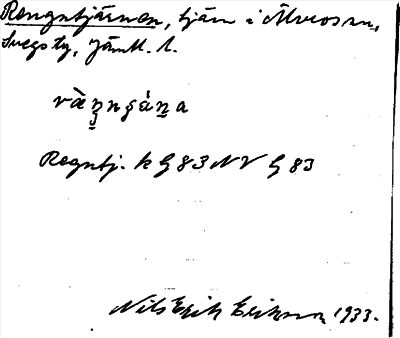 Rengntjärnen, tjärn i Älvros sn,
Svegs tg, Jämtl. l.
Regntj. k G 83 NV G 83
Nils Erik Erikson 1933.